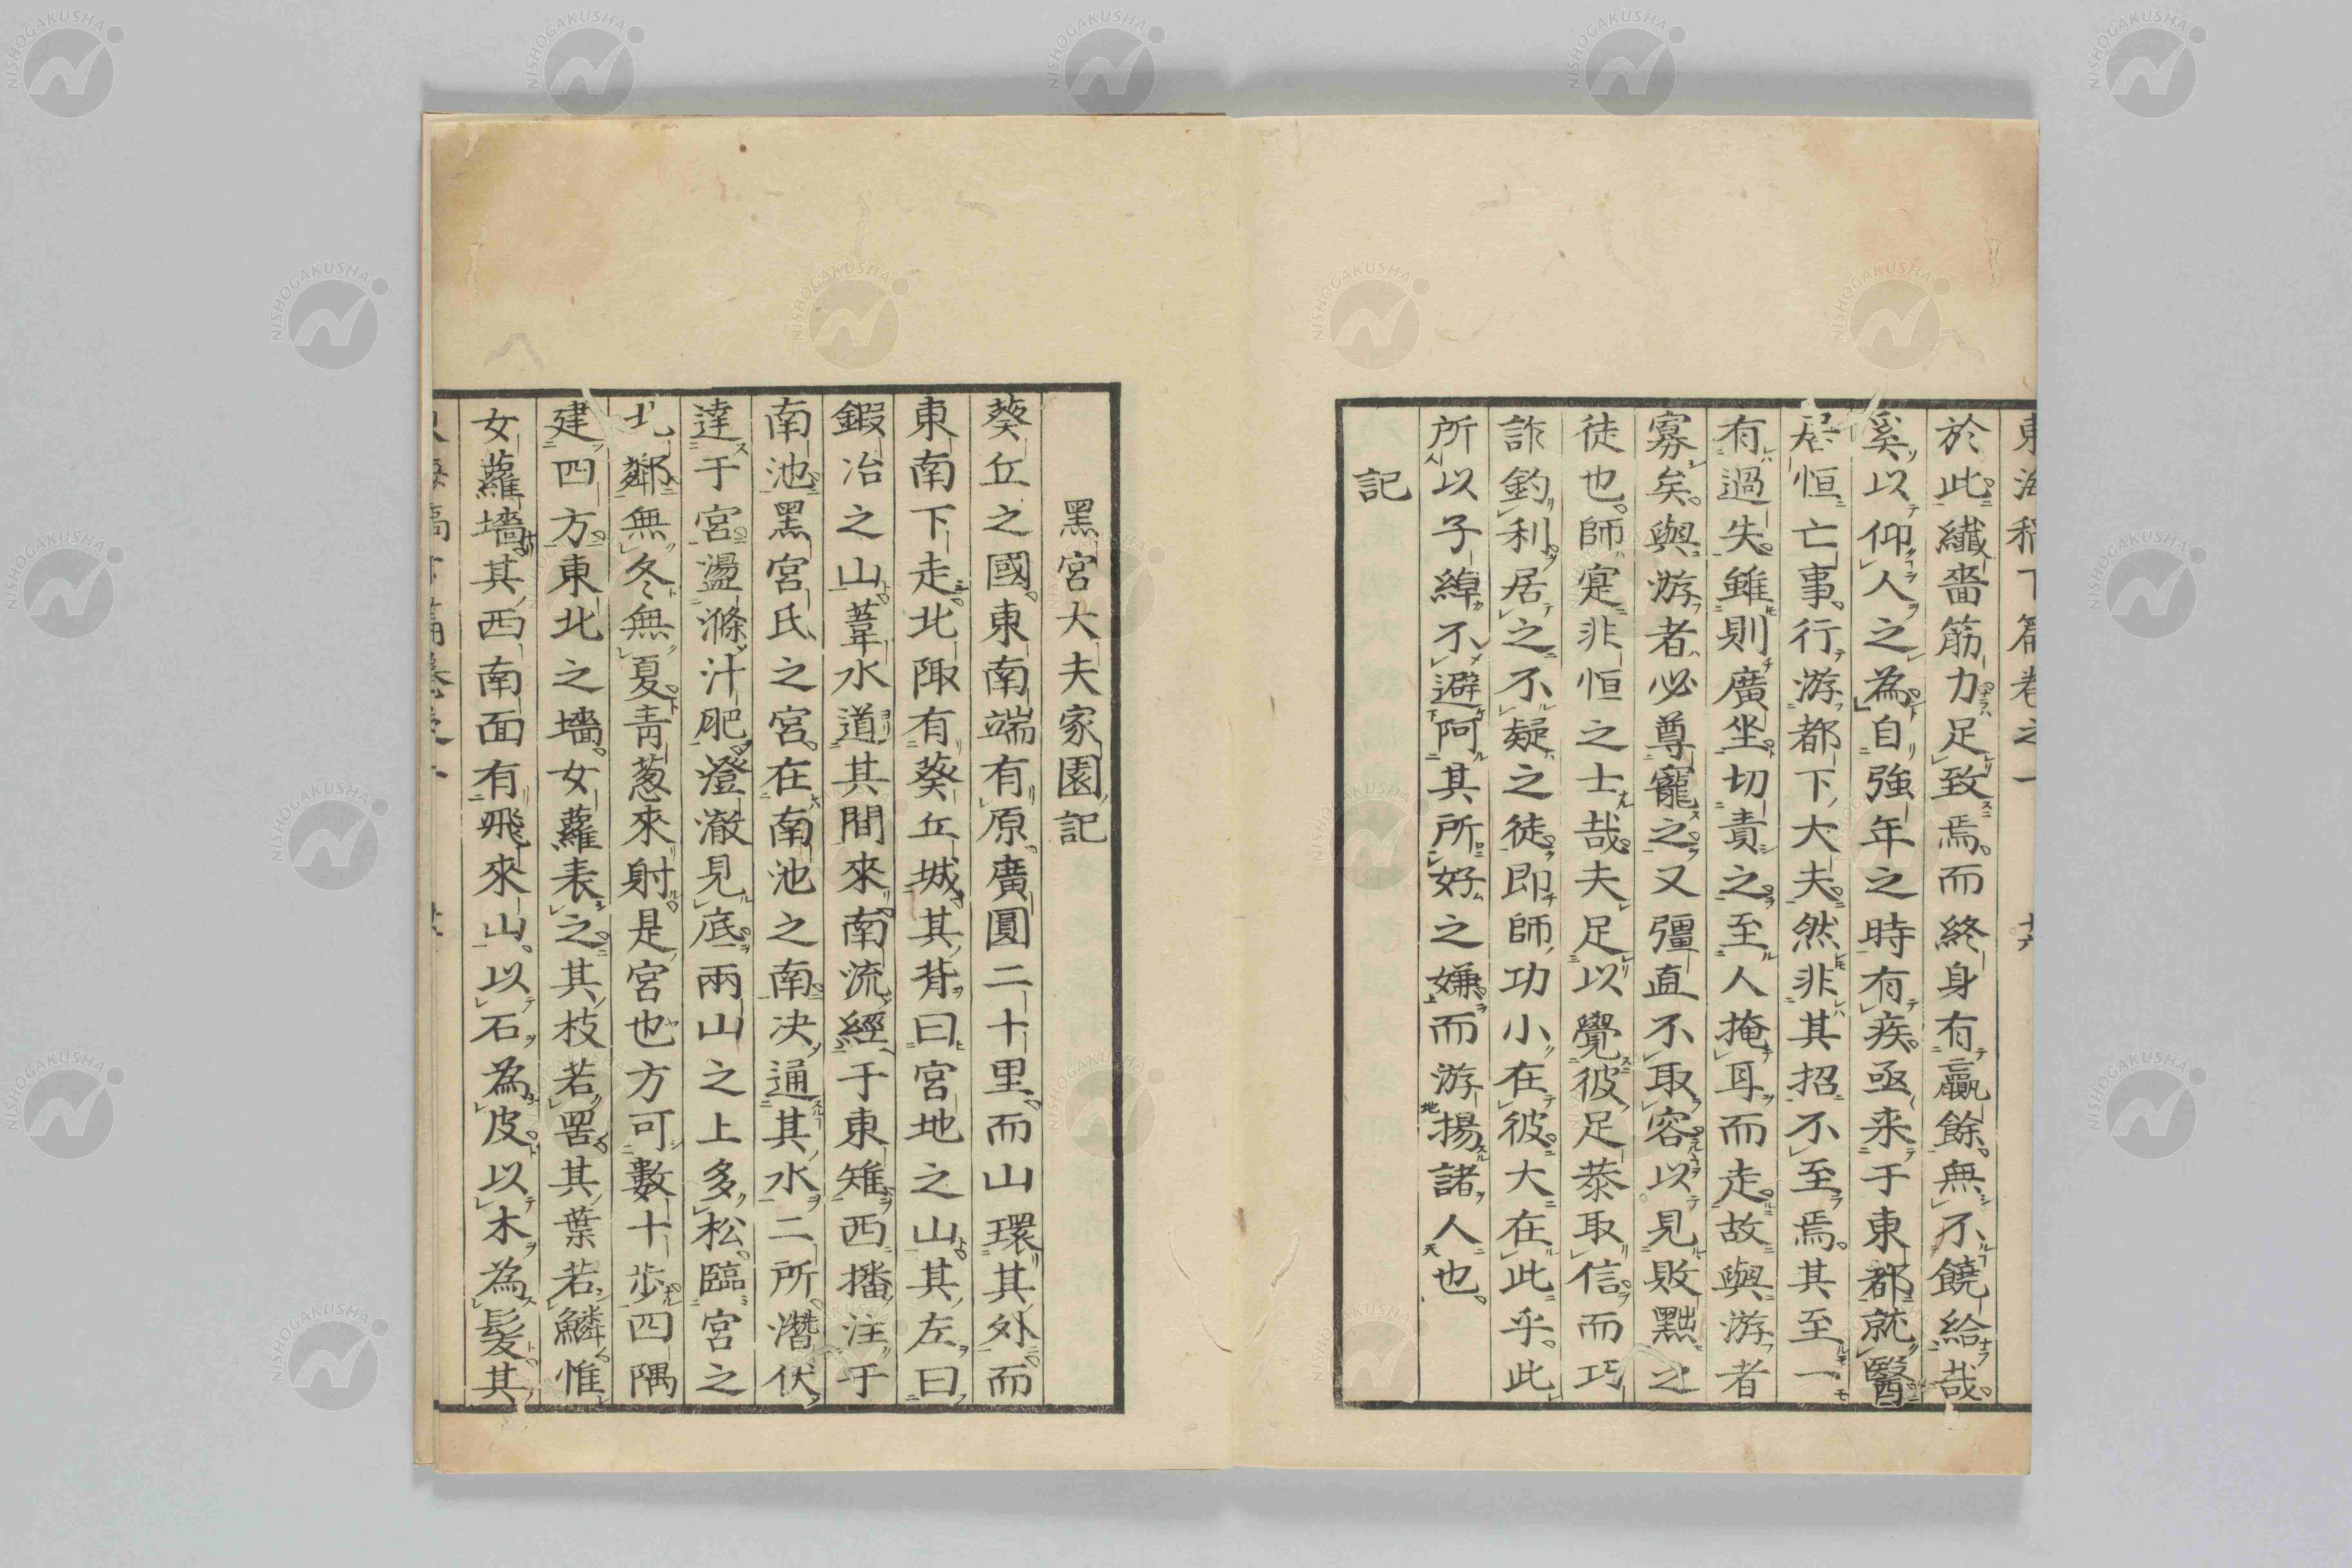 於此纎嗇筋力足致焉而終身有贏餘無不饒給哉
奚以仰人之為自強年之時有疾亟来于東都就醫
居恒亡事行游都下大夫然非其招不至焉其至一
有過失雖則廣坐切責之至人掩耳而走故與游者
寡矣與游者必尊寵之又彊直不取容以見敗黜之
徒也師寔非恒之士哉夫足以覺彼足恭取信而巧
詐釣利居之不疑之徒即師功小在彼大在此乎此
所以子綽不避阿其所好之嫌而游揚諸人也
記
黑宮大夫家園記
葵丘之國東南端有原廣圓二十里而山環其外而
東南下走北陬有葵丘城其背曰宮地之山其左曰
鍜冶之山葦水道其間來南流經于東雉西播注于
南池黑宮氏之宮在南池之南决通其水二所潛伏
達于宮盪滌汁肥澄澈見底兩山之上多松臨宮之
北鄰無冬無夏青葱來射是宮也方可數十步四隅
建四方東北之墻女蘿表之其枝若罟其葉若鱗惟
女蘿墻其西南面有飛來山以石為皮以木為髮其